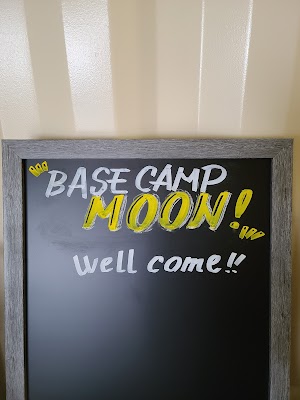 BASE CAMP
MOON!
Well come!!